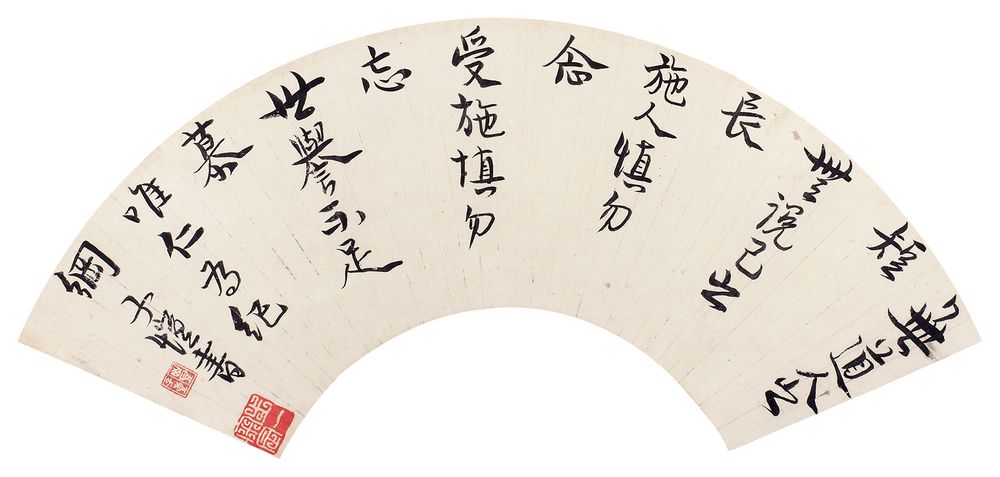 無道人之
短
無說己之
長
施人慎勿
念
受施慎勿
忘
世譽不足
慕
唯仁為紀
綱
子愷書